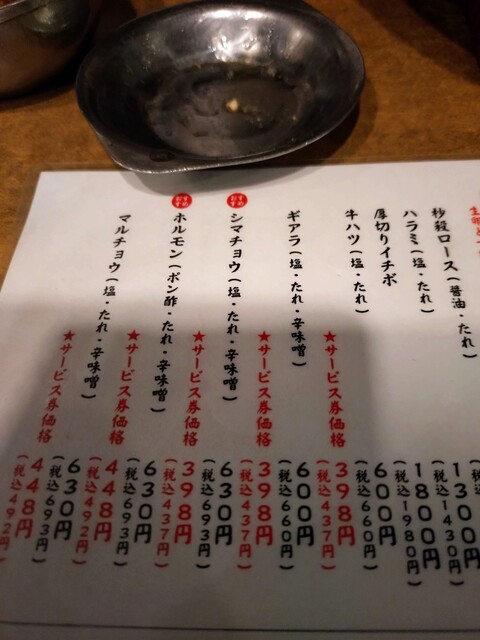 秒殺ロース(醤油・たれ)
ハラミ(塩・たれ) 1300円
(税込1430円)
厚切りイチボ 1800円
(税込1980円)
牛ハツ(塩・たれ) 600円
(税込660円)
★サービス券価格 398円
(税込437円)
ギアラ(塩・たれ・辛味噌) 600円
(税込660円)
★サービス券価格 398円
(税込437円)
おすすめ シマチョウ(塩・たれ・辛味噌) 630円
(税込693円)
★サービス券価格 398円
(税込437円)
おすすめ ホルモン(ポン酢・たれ・辛味噌) 630円
(税込693円)
★サービス券価格 448円
(税込492円)
マルチョウ(塩・たれ・辛味噌) 630円
(税込693円)
★サービス券価格 448円
(税込492円)